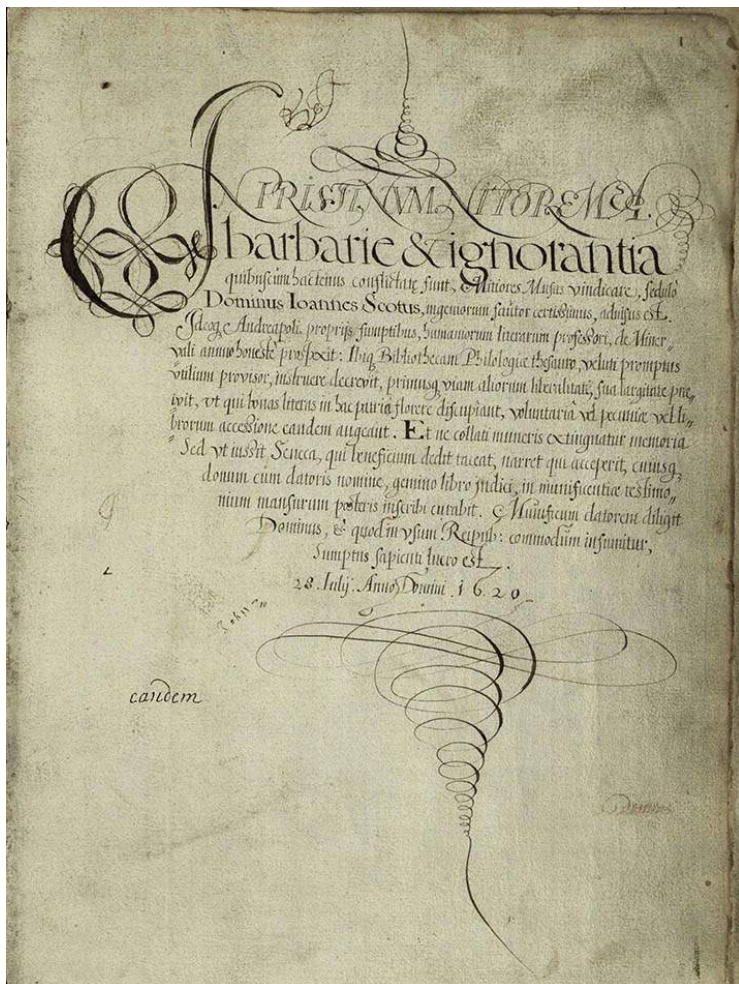 1
IN PRISTINUM NITOREM Eq A.
barbarie & ignorantia
quibuscum hactenus conflictatę sunt, Mitiores Musas vindicare, sedulo
Dominus Ioannes Scotus, ingeniorum fautor certissimus, adnisus est.
Ideoq Andreapoli proprijs sumptibus, humaniorum literarum professori, de Miner„
vali annuo honestè prospexit: Ibiq Bibliothecam Philologiæ thesauro, veluti promptus
vtilium provisor, instruere decrevit, primusq viam aliorum liberalitati, sua largitate præ„
ivit, vt qui bonas literas in hac patria florere discupiant, voluntariâ vel pecuniæ vel li„
brorum accessione eandem augeant. Et ne collati muneris extinguatur memoria
Sed vt iussit Seneca, qui beneficium dedit taceat, narret qui acceperit, cuiusq
donum cum datoris nomine, gemino libro indici, in munificentiæ testimo„
nium mansurum posteris inscribi curabit. Munificum datorem diligit
Dominus, & quod in vsum Reipub: commodum insumitur,
Sumptus sapienti lucro est.
28. Iulij. Anno Domini. 1620.
eandem